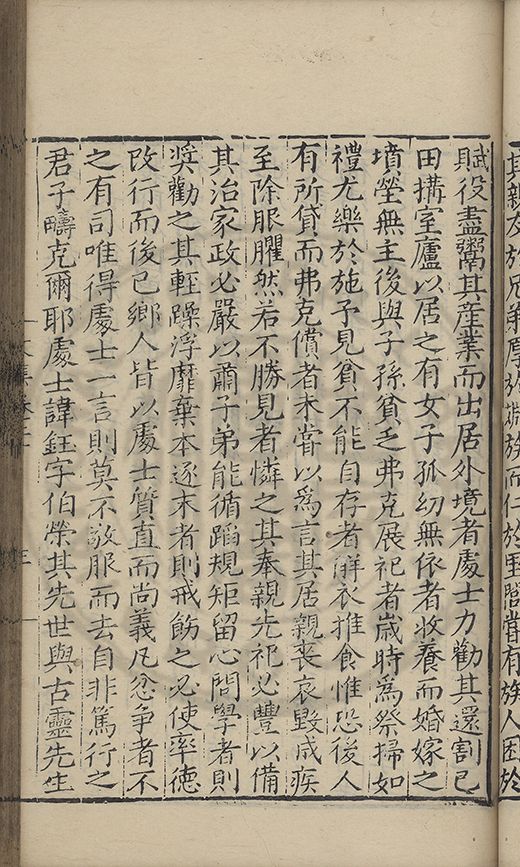 其親友於兄弟厚於婣族而仁於里閭嘗有族人困於
賦役盡鬻其産業而出居外境者處士力勸其還割己
田搆室廬以居之有女子孤幼無依者收養而婚嫁之
墳塋無主後與子孫貧乏弗克展祀者歲時爲祭掃如
禮尤樂於施予見貧不能自存者解衣推食惟恐後人
有所貸而弗克償者未嘗以爲言其居親喪哀毀成疾
至除服臞然若不勝見者憐之其奉親先祀必豐以備
其治家政必嚴以肅子弟能循蹈規矩留心問學者則
奬勸之其輕躁浮靡棄本逐末者則戒飭之必使率德
改行而後已鄉人皆以處士質直而尚義凡忿争者不
之有司唯得處士一言則莫不敬服而去自非篤行之
君子疇克爾耶處士諱鈺字伯榮其先世與古靈先生